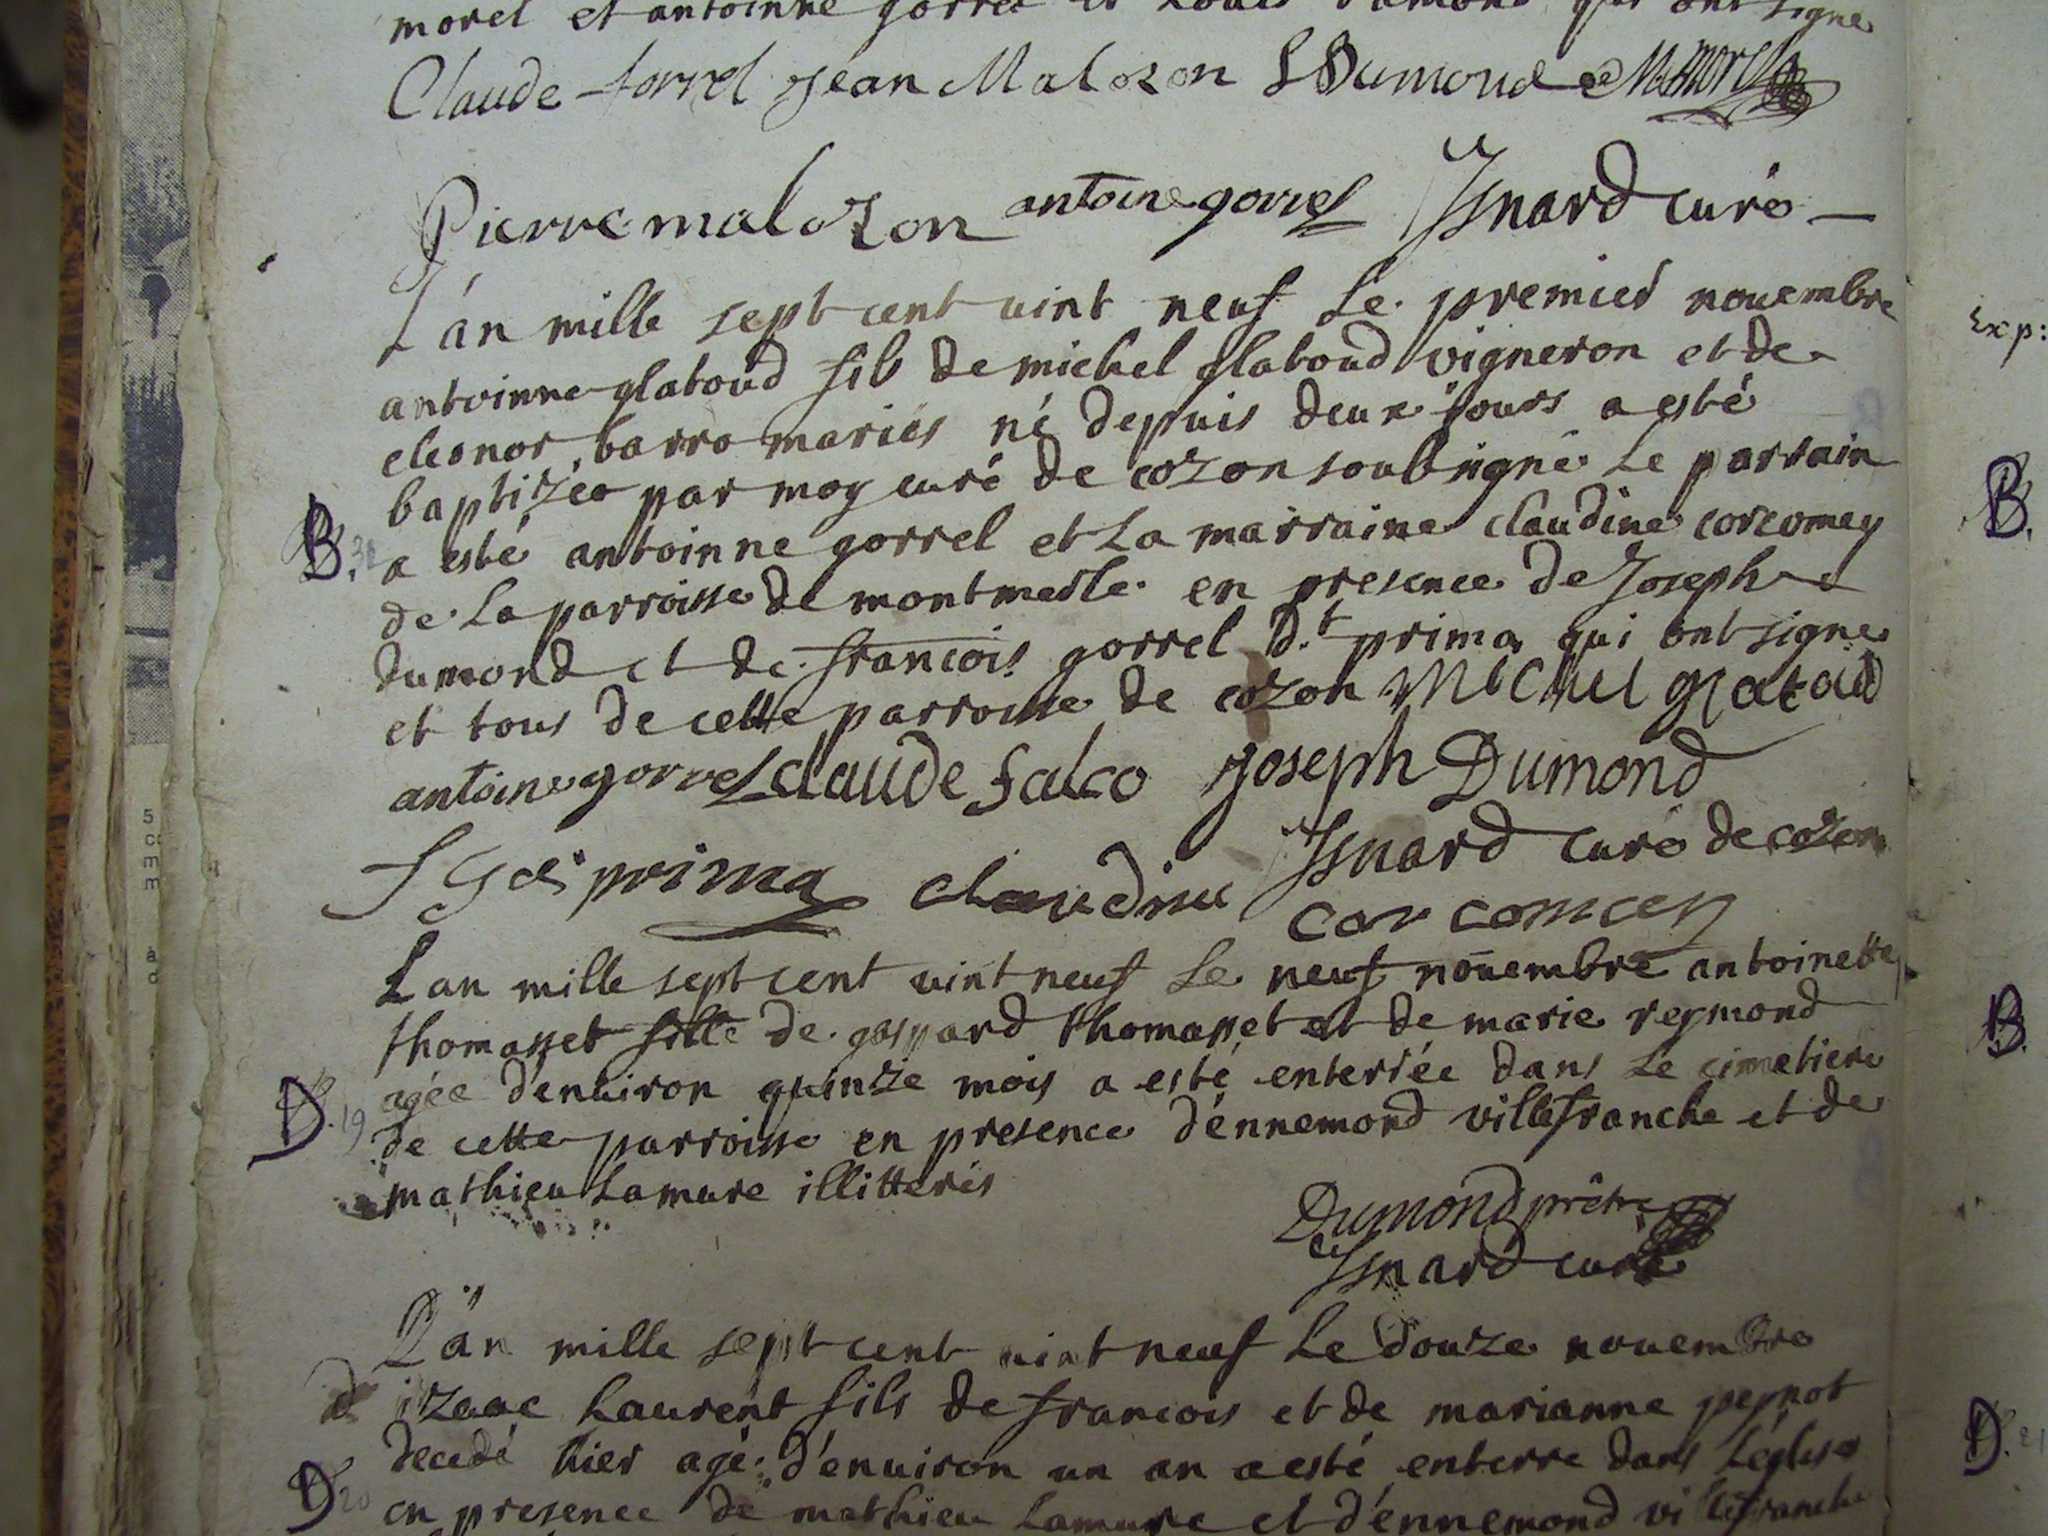 morel et antoinne gorrel et Louis dumond qui ont signe
Claude forrel jean Malozon L Dumond Morel
Pierre malozon antoine gorrel Isnard curé
L'an mille sept cent uint neuf Le premier nouembre
antoinne glatoud fils de michel glatoud vigneron et de
eleonor barro mariés né depuis deux jours a esté
baptizée par moy curé de cozon soubsigné Le parrain
a esté antoinne gorrel et La marraine claudine corcomey
de La parroisse de montmesle en presence de Joseph
dumond et de francois gorrel d.t prima qui ont signe
et tous de cette parroisse de cozon Michel glatoud
antoine gorrel claude falco joseph Dumond
f G di prima claudine Isnard curé de cozon
corcomey
L an mille sept cent uint neuf Le neuf nouembre antoinette
thomasset fille de gaspard thomasset et de marie reymond
agée d'enuiron quinze mois a esté enterrée dans Le cimetiere
de cette parroisse en presence d'ennemond villefranche et de
mathieu Lamure illitterés
Dumond prêtre
Isnard curé
L'an mille sept cent uint neuf Le douze nouembre
izaac Laurent fils de francois et de marianne peynot
decedé hier agé d'enuiron un an a esté enterre dans L'eglise
en presence de mathieu Lamure et d'ennemond villefranche
B. 31
D. 19
D 20
Exp:
B.
B.
D. 21
5